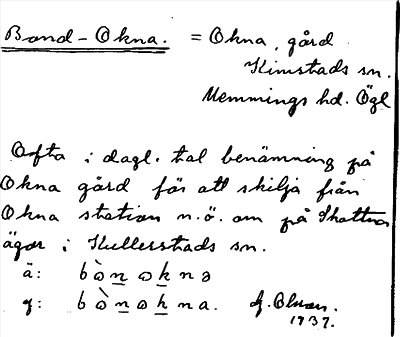 Bond-Okna. = Okna, gård
Kimstads sn.
Memmings hd. Ögl
Ofta i dagl. tal benämning på
Okna gård för att skilja från
Okna station n.ö. om på Skattna
ägor i Kullerstads sn.
ä: bònokna
y: bònokna. 
1937.